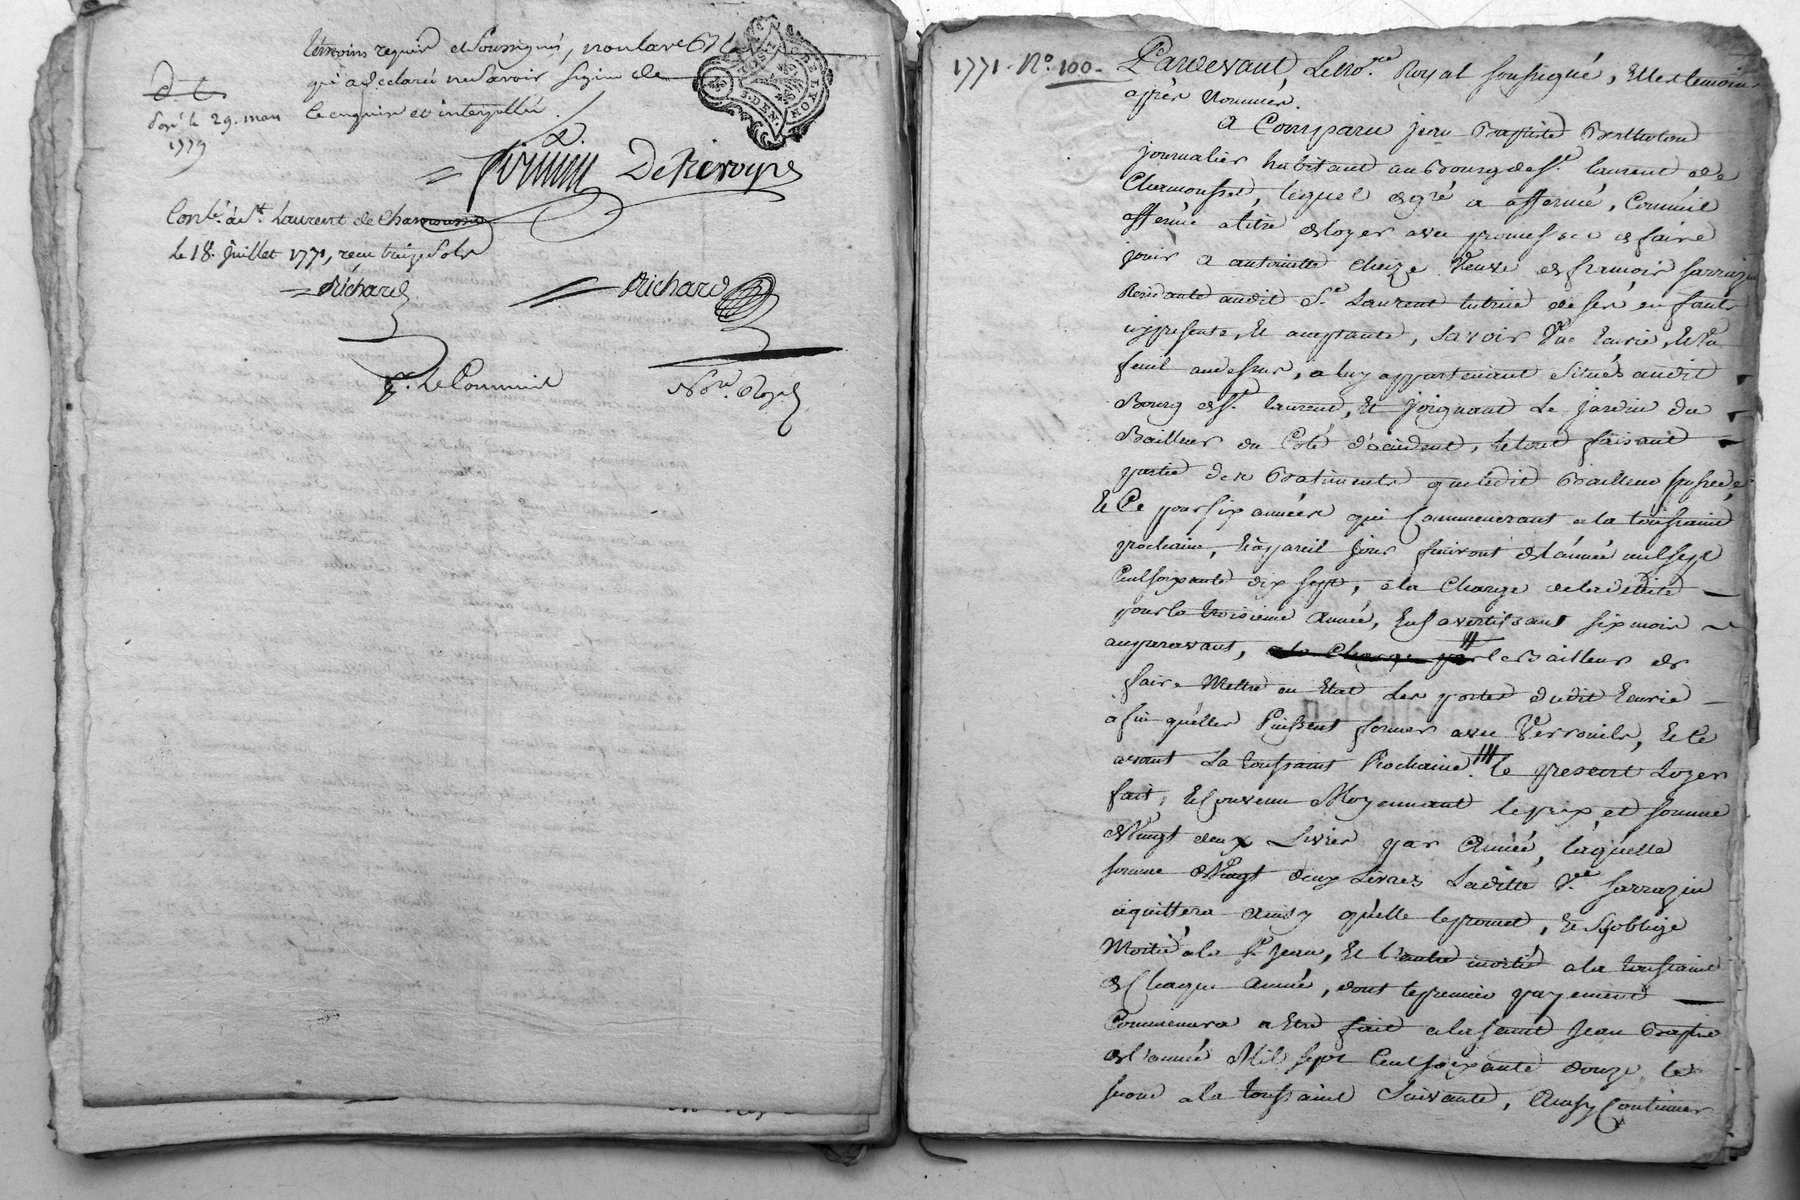 témoins requis et soussignés, non lave
qui a déclaré ne savoir signer de
ce enquis et interpellée.
Exp. le 29. mars
1779
DE LYON
3. DEN.
DeRévoyre
Conlé. à St. Laurent de Chamousset
Le 18. Juillet 1771, recu treize sols
Richard
Richard
Le Commis
No.re Royal
1771. No. 100.
Pardevant Le No.re Royal soussigné, et les temoins
après nommés.
a Comparu jean Baptiste Bertholon
journalier habitant au Bourg de St. laurent de
Chamousset, lequel de gré a affermé, Comme il
afferme a titre de loyer avec promesse de faire
jouir a antoinette Cheize Veuve de francois sarrazin
Residante audit St. Laurent tutrice de ses enfants
icy presente, et acceptante, savoir Une Ecurie, et la
feuil audessus, a luy appartenant situés audit
Bourg de St. laurent, et joignant Le jardin du
Bailleur du Coté d'occident, le tout faisant
partie des Batiments que ledit Bailleur possede
Et Ce pour six années qui Commenceront a la toussaint
prochaine, et a pareil jour finiront de l'année mil sept
Cent soixante dix sept, a la Charge de la dedite
pour la troisieme année, en s'avertissant six mois
auparavant, a la Charge par le Bailleur de
faire Mettre en Etat Les portes dudit Ecurie
afin qu'elles Puissent fermer avec Verrouils, et Ce
avant La toussaint Prochaine. le present Loyer
fait, et Convenu Moyennant le prix, et somme
de Vingt deux Livres par Année, laquelle
somme de Vingt deux Livres Laditte Ve. sarrazin
aquittera ainsy qu'elle le promet, et s'y oblige
Moitié a la St. Jean, et l'autre moitié a la toussaint
de Chaque Année, dont le premier payement
Commencera a Etre fait a la saint Jean Baptiste
de l'année Mil sept Cent soixante douze, le
second a la toussaint Suivante, Ainsy Continuer